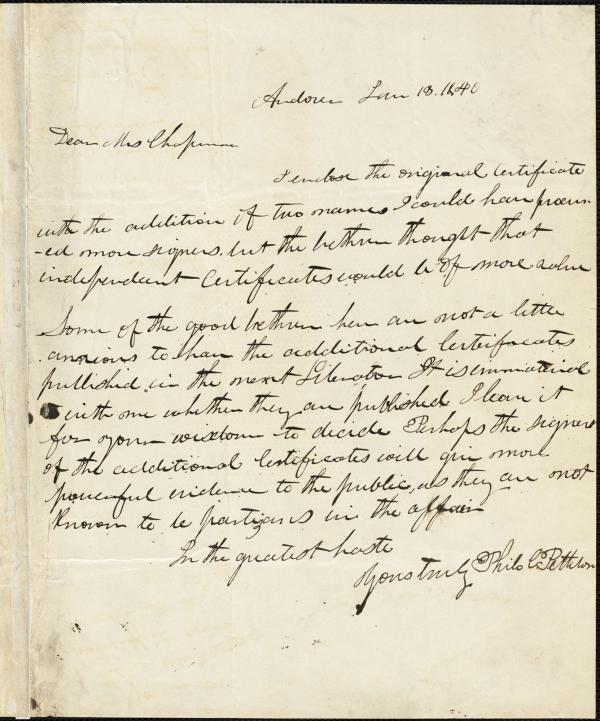 Andover Jan 13. 1840
Dear Mrs Chapman
I enclose the original certificate
with the addition of two names I could have procur-
-ed more signers. but the brethren thought that
independent certificates would be of more value
Some of the good brethren here are not a little
anxious to have the additional certificates
published in the next Liberator It is immaterial
with me whether they are published I leave it
for your wisdom to decide Perhaps the signers
of the additional certificates will give more
powerful evidence to the public, as they are not
known to be partizans in the affair
In the greatest haste
Yours truly Philo C Pettibone